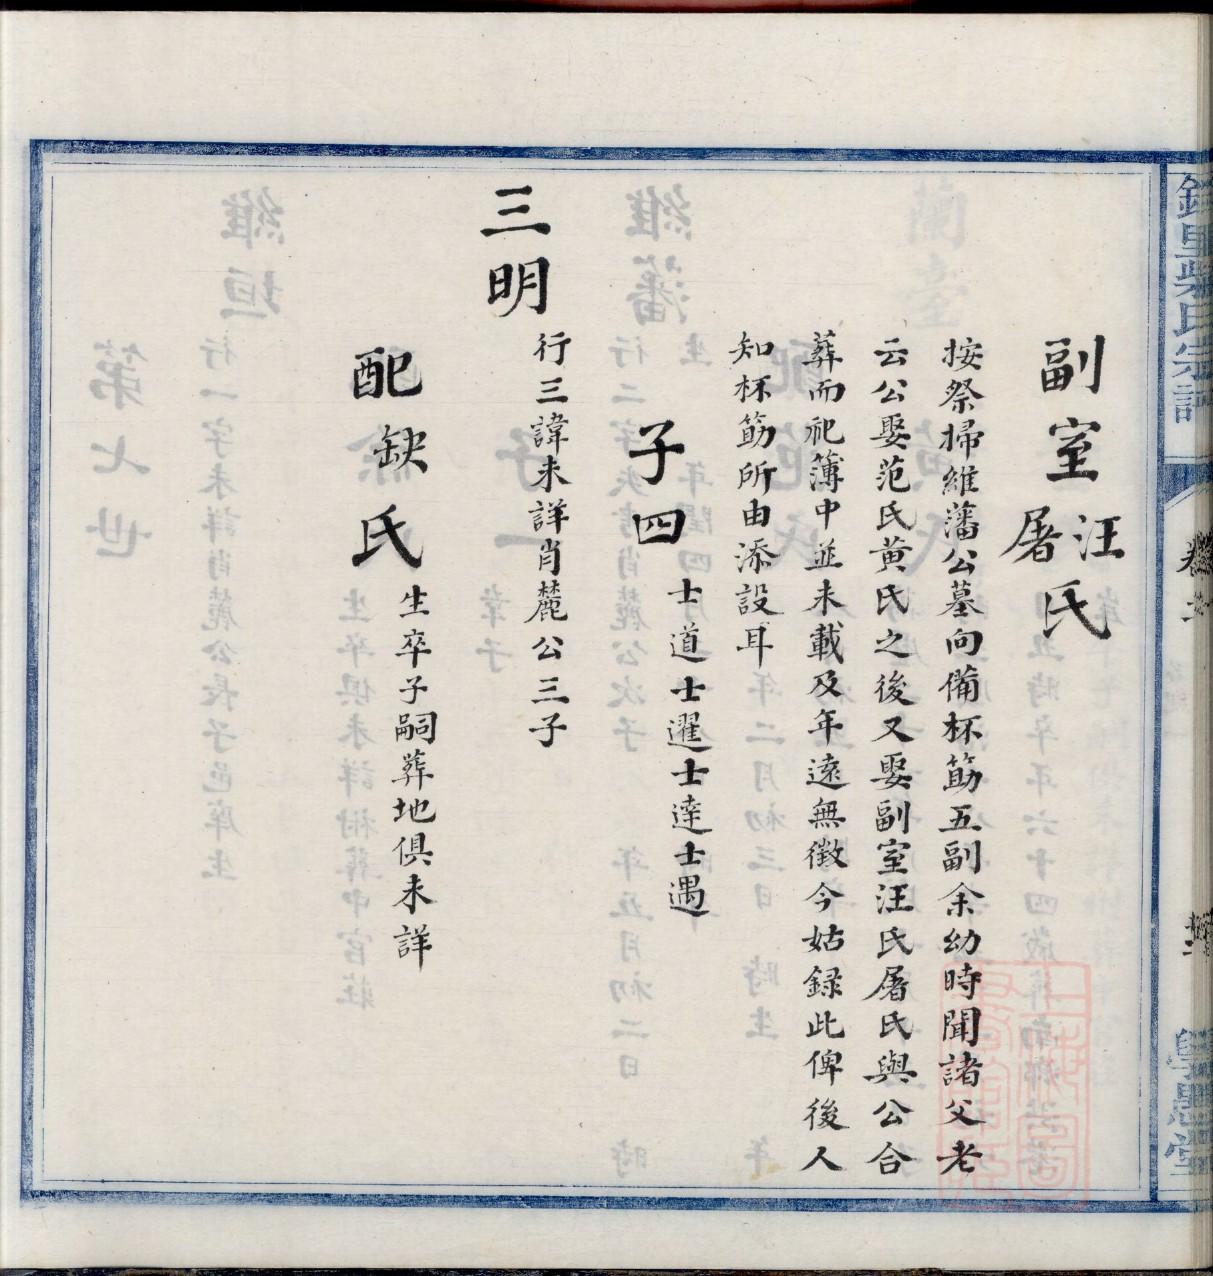 副室汪屠氏
按祭掃維藩公墓向備杯筯五副余幼時聞諸父老
云公娶范氏黃氏之後又娶副室汪氏屠氏與公合
葬而祀薄中並未載及年遠無徵今姑録此俾後人
知杯筯所由添設耳
子四
士道士濯士達士遇
三明
行三諱未詳肖麓公三子
配缺氏
生卒子嗣葬地俱未詳